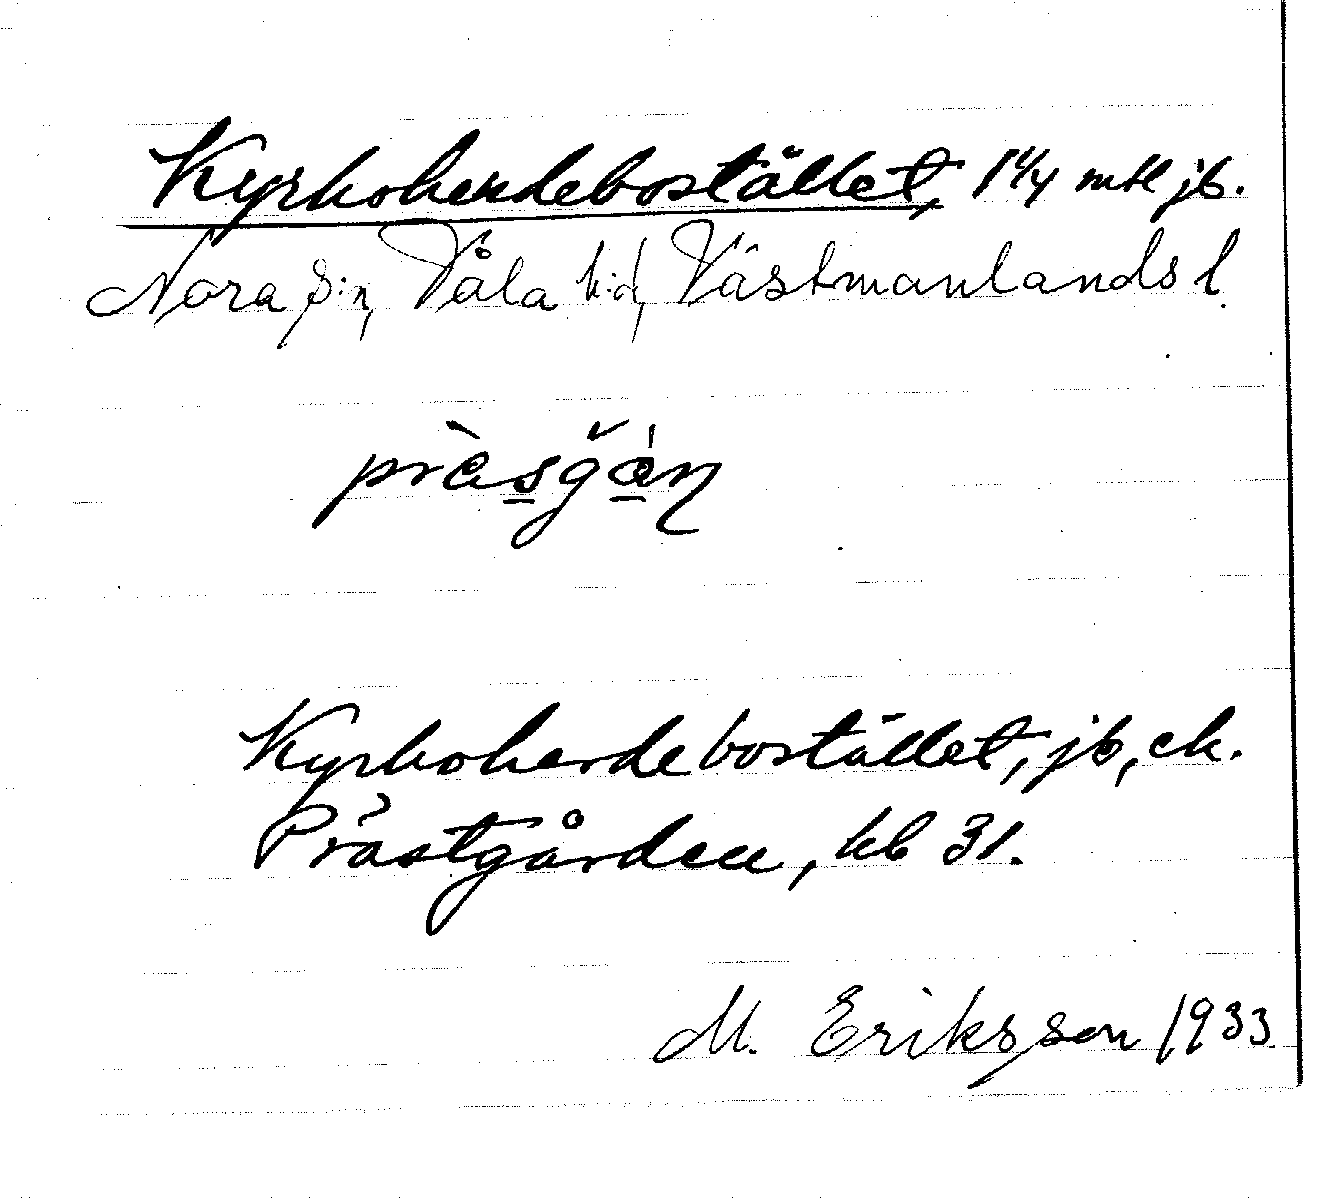 Kyrkoherdebostället, 1 1/4 mtl jb.
Nora s:n, Våla h:d, Västmanlands l.
pràsğán
Kyrkoherdebostället, jb, ek.
Prästgården, kb 31.
M. Eriksson 1933